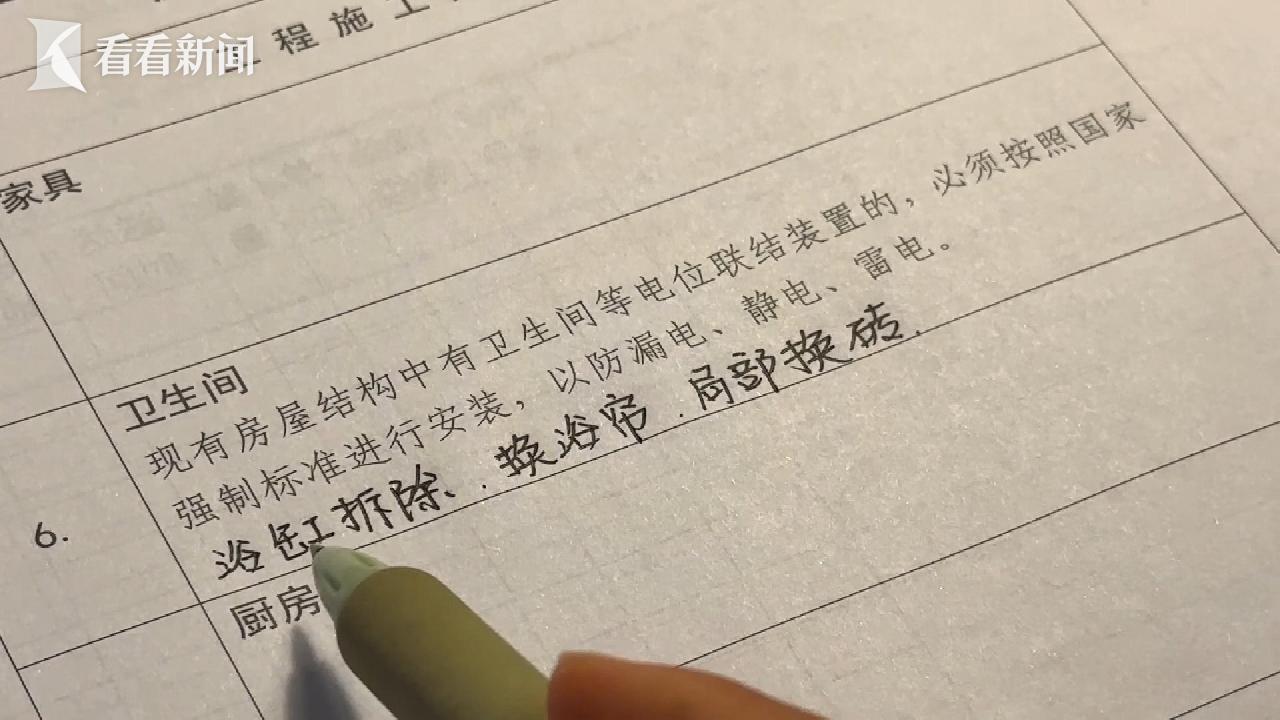 看看新闻
工程施工
家具
卫生间
现有房屋结构中有卫生间等电位联结装置的，必须按照国家
强制标准进行安装，以防漏电、静电、雷电。
浴缸拆除、换浴帘、局部换砖.
6.
厨房